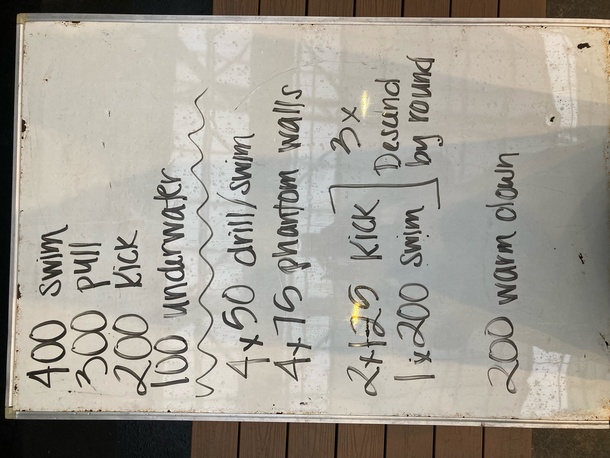 400 swim
300 pull
200 kick
100 underwater
4x50 drill/swim
4x75 phantom walls
2x125 kick
1x200 swim
3x
Descend
by round
200 warm down